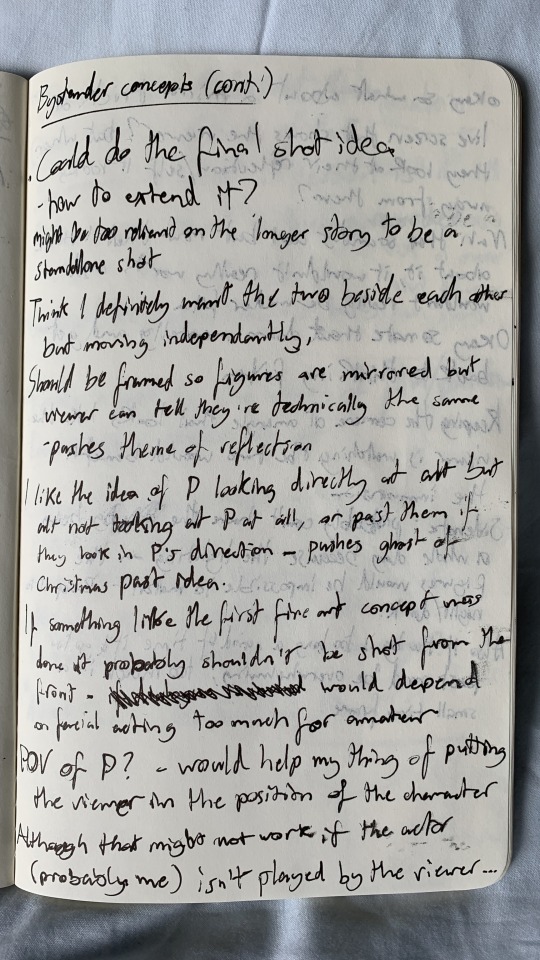 Bystander concepts (cont.)
. Could do the final shot idea
- how to extend it?
might be too reliant on the longer story to be a
standalone shot
Think I definitely want the two beside each other
but moving independantly,
Should be framed so figures are mirrored but
viewer can tell they're technically the same
- pushes theme of reflection
I like the idea of P looking directly at alt but
alt not looking at P at all, or past them if
they look in P's direction - pushes ghost of
Christmas past idea.
If something like the first fine art concept was
done it probably shouldn't be shot from the
front - would depend
on facial acting too much for amateur
POV of P? - would help my thing of putting
the viewer in the position of the character
Although that might not work if the actor
(probably me) isn't played by the viewer...